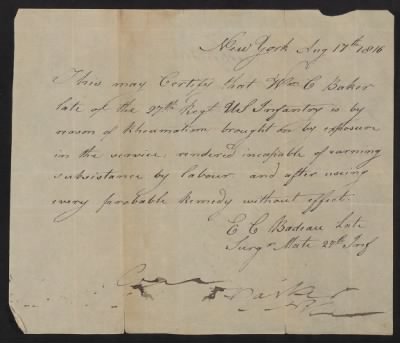 New York Aug 17th 1816
This may Certify that Wm C Baker
late of the 27th Regt US Infantry is by
reason of Rheumatism brought on by exposure
in the service rendered incapable of earning
subsistance by labour and after using
every probable Remedy without effect
E C Badeau Late
Surgn Mate 27th Inf